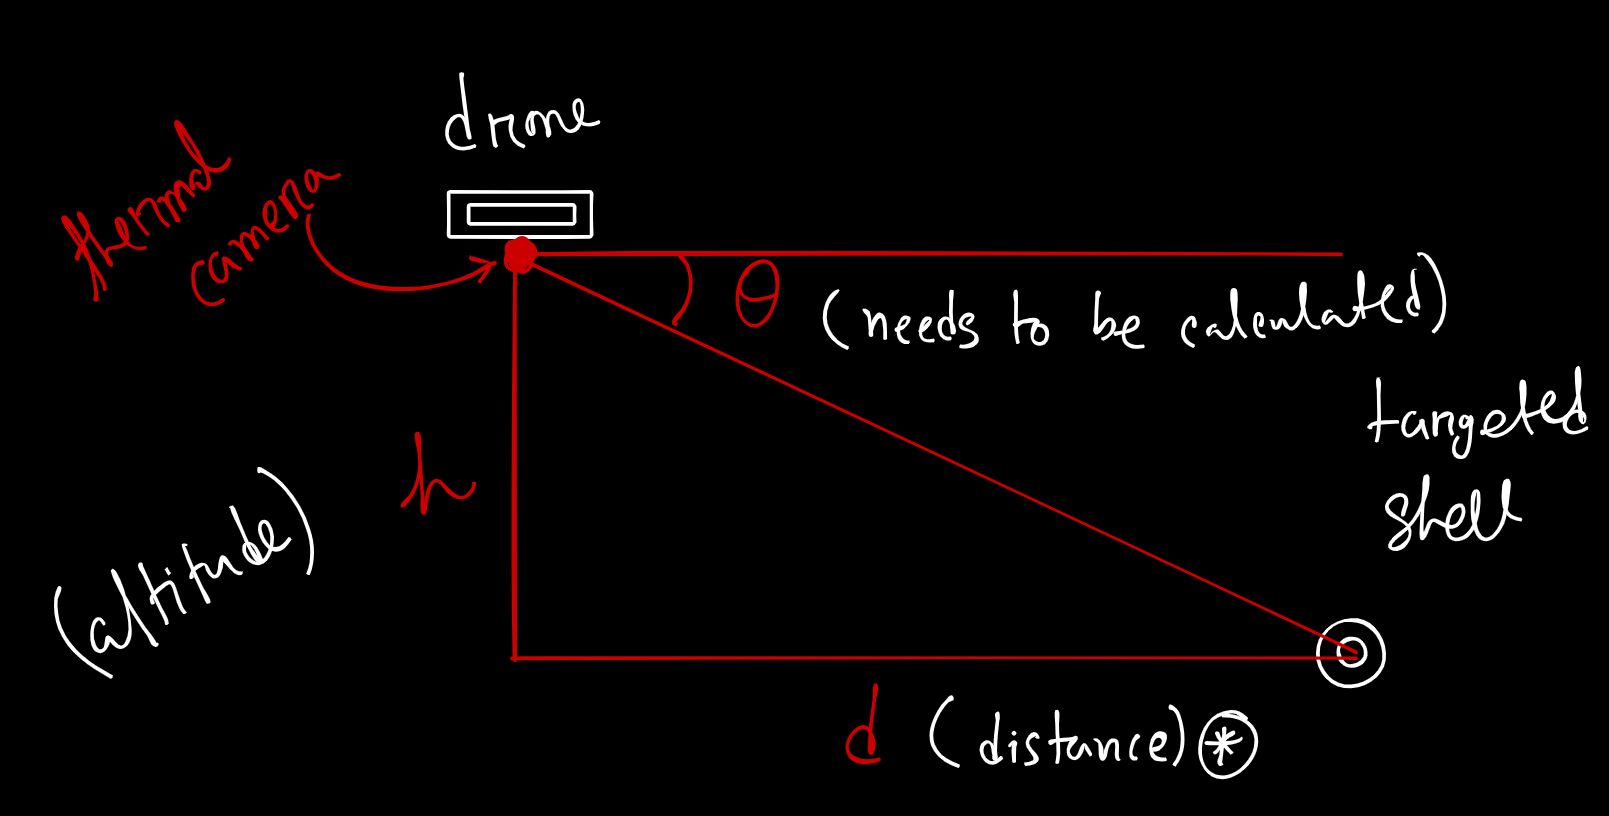 drone
thermal
camera
θ
(needs to be calculated)
targeted
shell
h
(altitude)
d (distance) *